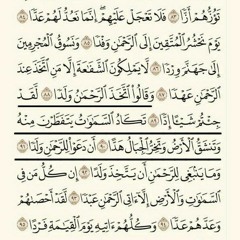 تَؤُزُّهُمْ أَزًّا ٨٣ فَلَا تَعْجَلْ عَلَيْهِمْ إِنَّمَا نَعُدُّ لَهُمْ عَدًّا ٨٤
يَوْمَ نَحْشُرُ ٱلْمُتَّقِينَ إِلَى ٱلرَّحْمَٰنِ وَفْدًا ٨٥ وَنَسُوقُ ٱلْمُجْرِمِينَ
إِلَىٰ جَهَنَّمَ وِرْدًا ٨٦ لَّا يَمْلِكُونَ ٱلشَّفَٰعَةَ إِلَّا مَنِ ٱتَّخَذَ عِندَ
ٱلرَّحْمَٰنِ عَهْدًا ٨٧ وَقَالُوا۟ ٱتَّخَذَ ٱلرَّحْمَٰنُ وَلَدًا ٨٨ لَّقَدْ
جِئْتُمْ شَيْـًٔا إِدًّا ٨٩ تَكَادُ ٱلسَّمَٰوَٰتُ يَتَفَطَّرْنَ مِنْهُ
وَتَنشَقُّ ٱلْأَرْضُ وَتَخِرُّ ٱلْجِبَالُ هَدًّا ٩٠ أَن دَعَوْا۟ لِلرَّحْمَٰنِ وَلَدًا ٩١
وَمَا يَنۢبَغِى لِلرَّحْمَٰنِ أَن يَتَّخِذَ وَلَدًا ٩٢ إِن كُلُّ مَن فِى
ٱلسَّمَٰوَٰتِ وَٱلْأَرْضِ إِلَّآ ءَاتِى ٱلرَّحْمَٰنِ عَبْدًا ٩٣ لَّقَدْ أَحْصَىٰهُمْ
وَعَدَّهُمْ عَدًّا ٩٤ وَكُلُّهُمْ ءَاتِيهِ يَوْمَ ٱلْقِيَٰمَةِ فَرْدًا ٩٥